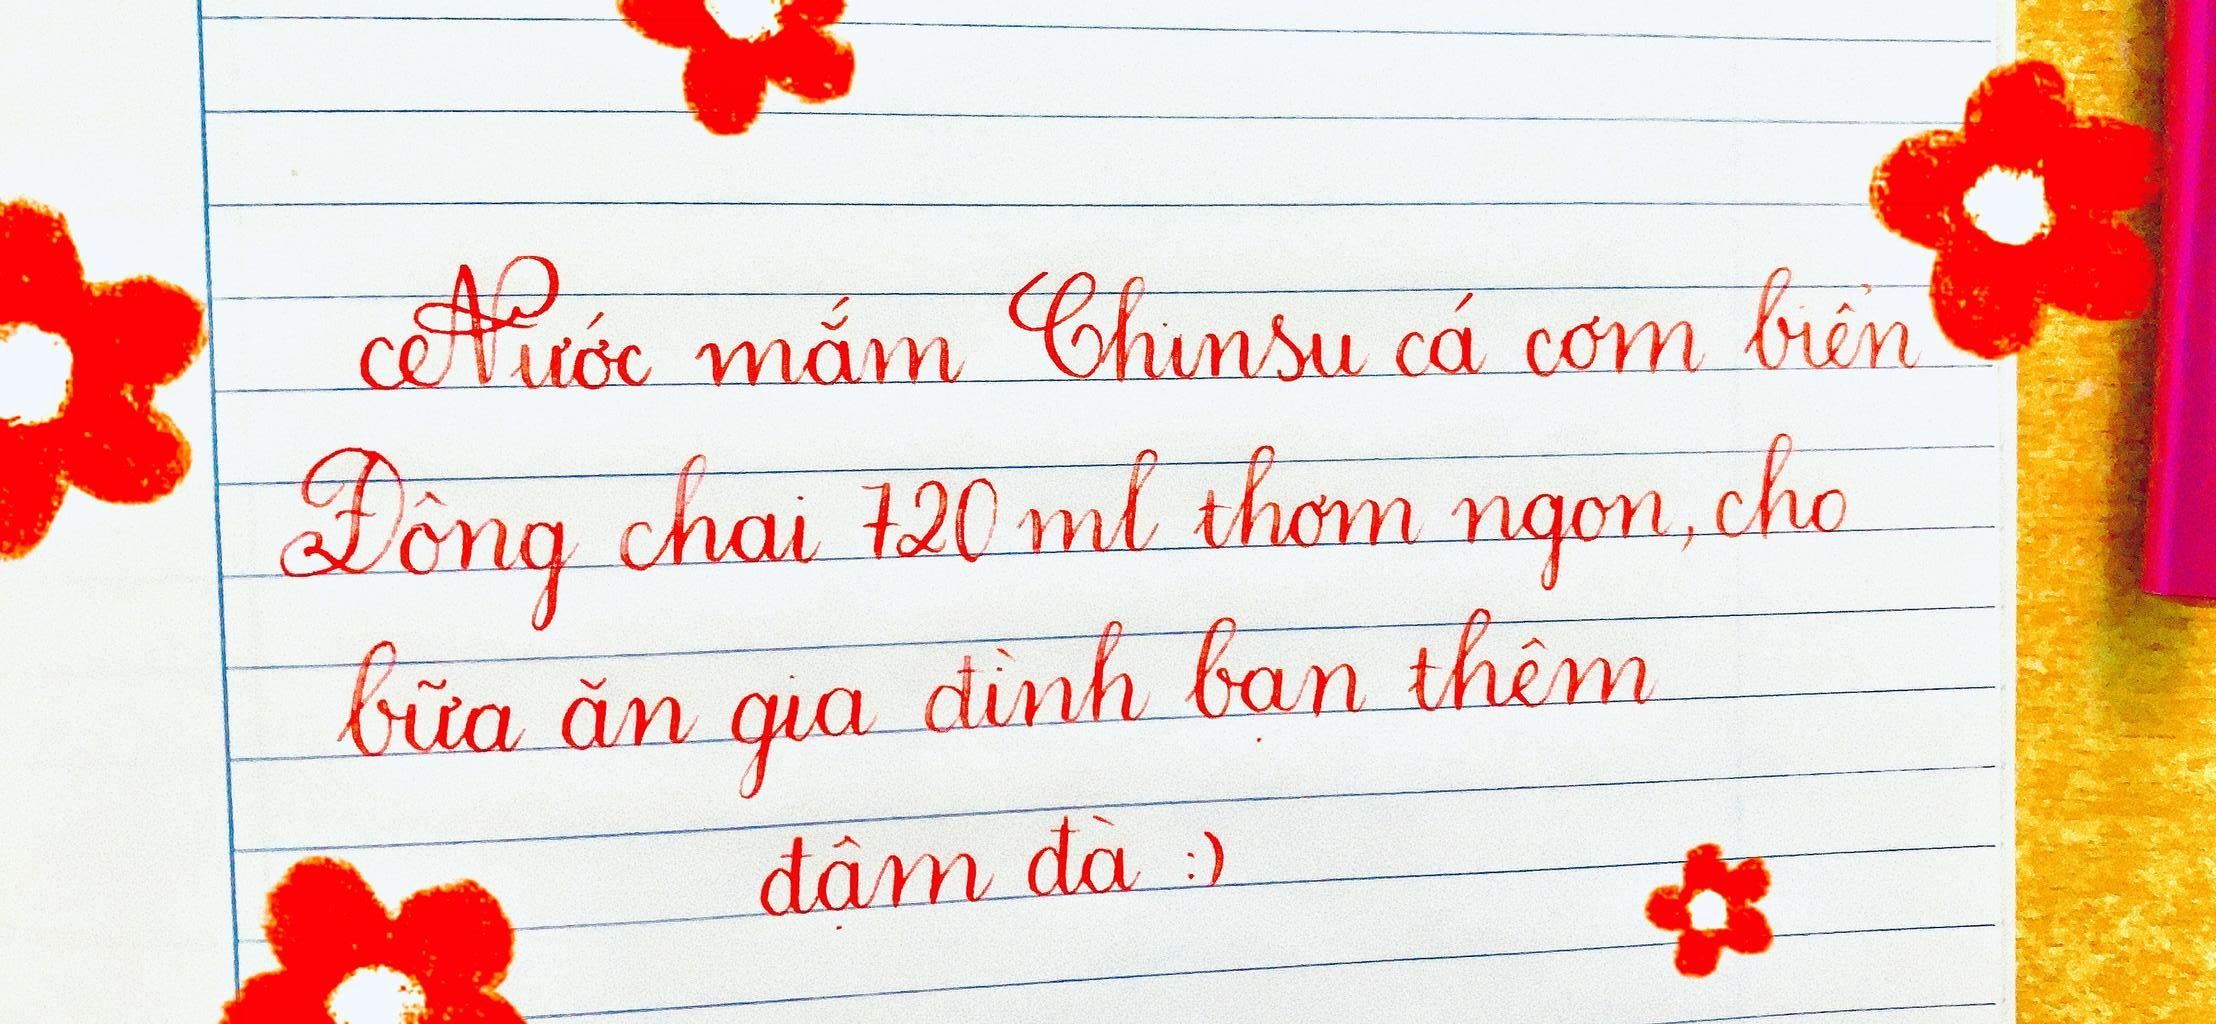 Nước mắm Chinsu cá cơm biển
Đông chai 720 ml thơm ngon, cho
bữa ăn gia đình bạn thêm
đậm đà :)